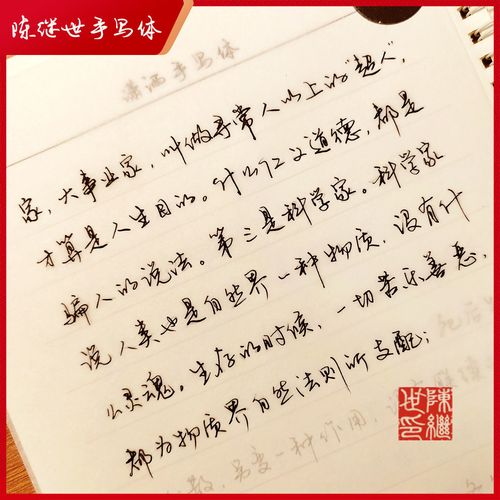 陈继世手写体
潇洒手写体
家，大事业家，叫做寻常人以上的“超人”，
才算是人生目的。什么仁义道德，都是
骗人的说法。第三是科学家。科学家
说人类也是自然界一种物质，没有什
么灵魂。生存的时候，一切苦乐善恶，
都为物质界自然法则所支配；
陳繼
世印
另变一种作用